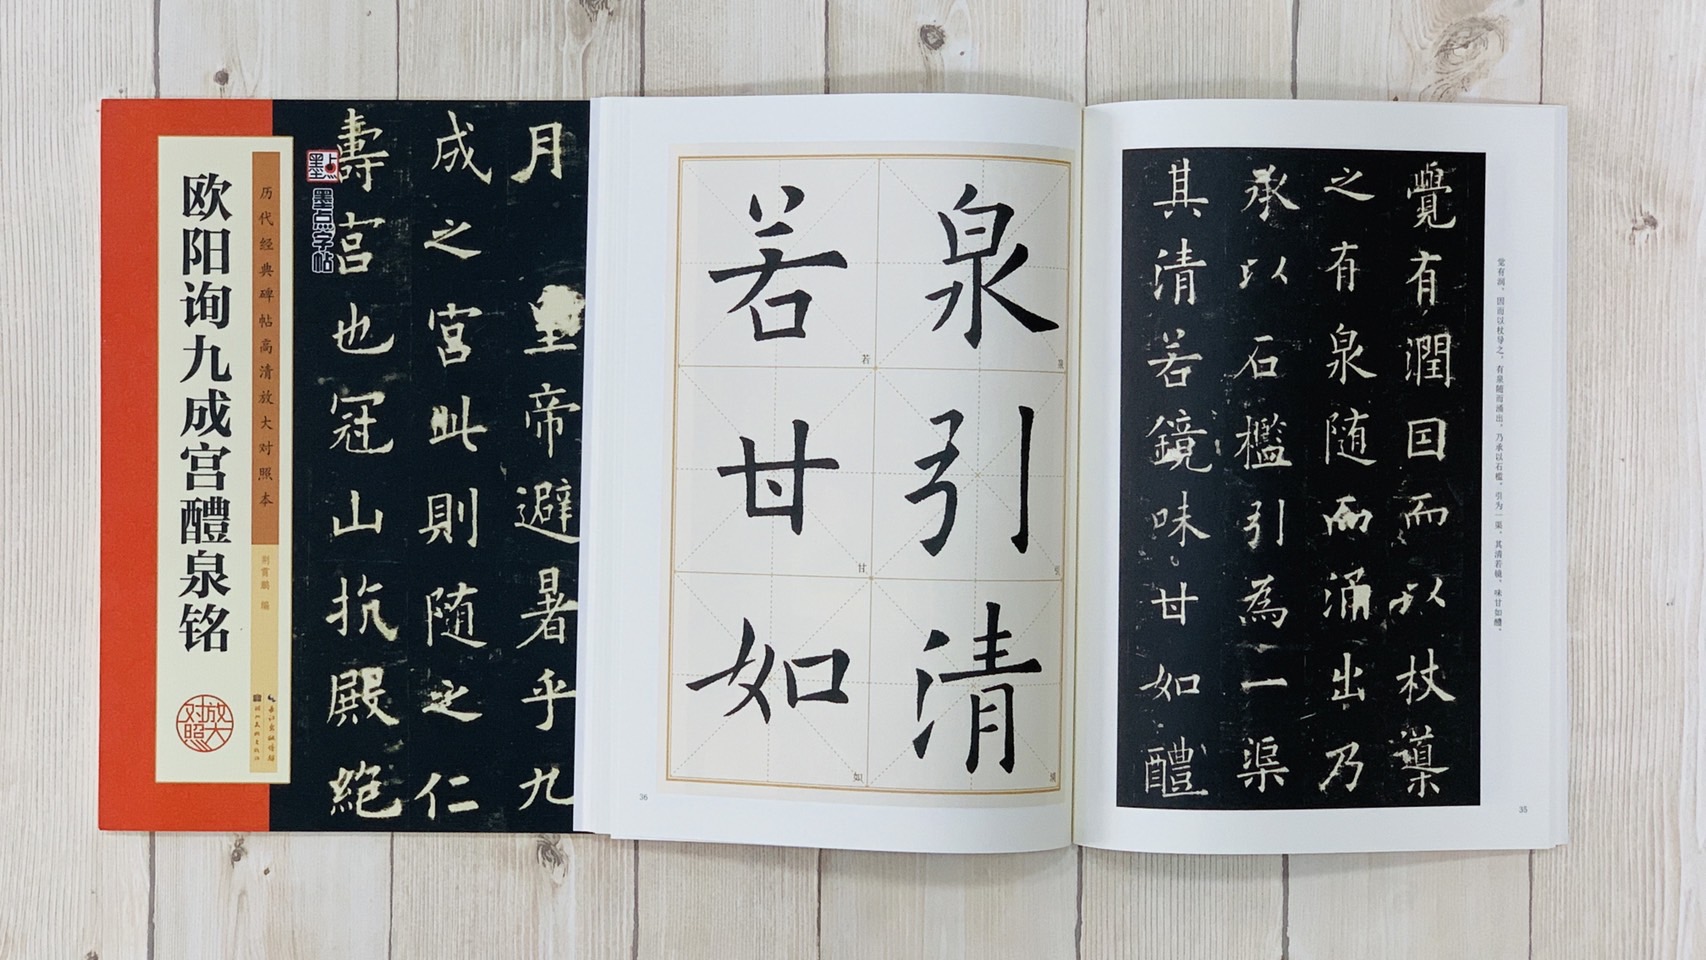 欧阳询九成宫醴泉铭
历代经典碑帖高清放大对照本
刘青鹏 编
放大对照
墨点
墨点字帖
月 皇帝避暑乎九
成之宫此则随之仁
壽宫也冠山抗殿絶
覺有潤因而以杖導
之有泉随而涌出乃
承以石檻引為一渠
其清若鏡味甘如醴
觉有润，因而以杖导之，有泉随而涌出，乃承以石槛，引为一渠，其清若镜，味甘如醴，
35
泉引清
泉
引
清
若甘如
若
甘
如
36